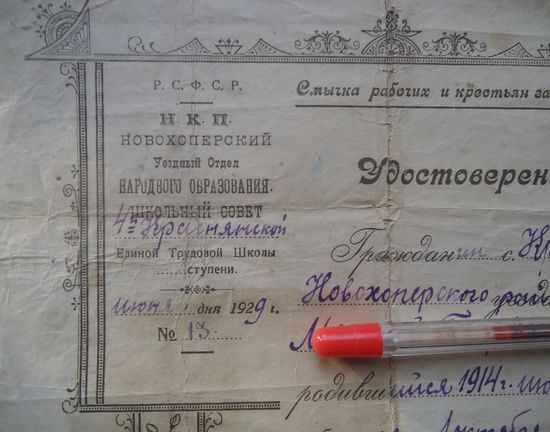 Р. С. Ф. С. Р.
Н. К. П.
НОВОХОПЕРСКИЙ
Уездный Отдел
НАРОДНОГО ОБРАЗОВАНИЯ.
ШКОЛЬНЫЙ СОВЕТ
4й Краснянской
Единой Трудовой Школы
ступени.
июня дня 1929 г.
№ 13.
Смычка рабочих и крестьян за
Удостоверен
Гражданин с.
Новохоперского
родившийся 1914 г. ию